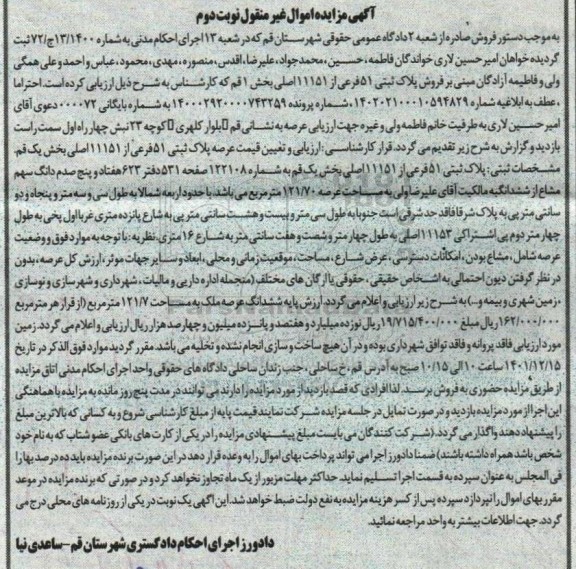 آگهی مزایده اموال غیر منقول نوبت دوم
به موجب دستور فروش صادره از شعبه ۲ دادگاه عمومی حقوقی شهرستان قم که در شعبه ۱۳ اجرای احکام مدنی به شماره ۱۳/۱۴۰۰ج/۷۲ ثبت
گردیده خواهان امیرحسین لاری خواندگان فاطمه، حسین، محمدجواد، علیرضا، اقدس، منصوره، مهدی، محمود، عباس و احمد و علی همگی
ولی و فاطیمه آزادگان مبنی بر فروش پلاک ثبتی ۵۱ فرعی از ۱۱۱۵۱ اصلی بخش ۱ قم که کارشناس به شرح ذیل ارزیابی کرده است. احتراما
،عطف به ابلاغیه شماره ۱۴۰۲۰۲۱۰۰۰۱۰۵۹۴۸۲۹، شماره پرونده ۱۴۰۰۰۲۹۲۰۰۰۰۷۴۳۲۵۹ به شماره بایگانی ۰۰۰۰۷۲ دعوی آقای
امیر حسین لاری به طرفیت خانم فاطمه ولی و غیره جهت ارزیابی عرصه به نشانی قم بلوار کلهری کوچه ۲۳ نبش چهار راه اول سمت راست
بازدید و گزارش به شرح زیر تقدیم می گردد. قرار کارشناسی: ارزیابی و تعیین قیمت عرصه پلاک ثبتی ۵۱ فرعی از ۱۱۱۵۱ اصلی بخش یک قم.
مشخصات ثبتی: پلاک ثبتی ۵۱ فرعی از ۱۱۱۵۱ اصلی بخش یک قم به شماره ۱۲۲۱۰۸ صفحه ۵۳۱ دفتر ۶۲۳ هفتاد و پنج صدم دانگ سهم
مشاع از ششدانگ به مالکیت آقای علیرضا ولی به مساحت عرصه ۱۲۱/۷۰ مترمربع می باشد. با حدود اربعه شمالا به طول سی و سه متر و پنجاه و دو
سانتی متر پی به پلاک شرقا فاقد حد شرقی است جنوبا به طول سی متر و بیست و هشت سانتی متر پی به شارع پانزده متری غربا اول پخی به طول
چهار متر دوم پی اشتراکی ۱۱۱۵۳ اصلی به طول چهار متر و شصت و هفت سانتی متر به شارع ۱۶ متری. نظریه: با توجه به موارد فوق و وضعیت
عرصه شامل، مشاع بودن، امکانات دسترسی، عرض شارع، مساحت، موقعیت زمانی و محلی، ابعاد و سایر جهات موثر، ارزش کل عرصه، بدون
در نظر گرفتن دیون احتمالی به اشخاص حقیقی، حقوقی یا ارگان های مختلف (منجمله اداره دارایی و مالیات، شهرداری و شهرسازی و نوسازی
،زمین شهری و بیمه و...) به شرح زیر ارزیابی و اعلام می گردد. ارزش پایه ششدانگ عرصه ملک به مساحت ۱۲۱/۷ مترمربع (از قرار هر مترمربع
۱۶۲/۰۰۰/۰۰۰ ریال مبلغ ۱۹/۷۱۵/۴۰۰/۰۰۰ ریال نوزده میلیارد و هفتصد و پانزده میلیون و چهارصد هزار ریال ارزیابی و اعلام می گردد. زمین
مورد ارزیابی فاقد پروانه و فاقد توافق شهرداری بوده و در آن هیچ ساخت و سازی انجام نشده و تخلیه می باشد. مقرر گردید موارد فوق الذکر در تاریخ
۱۴۰۱/۱۲/۱۵ ساعت ۱۰ الی ۱۰/۱۵ صبح به آدرس قم، خ ساحلی، جنب زندان ساحلی دادگاه های حقوقی واحد اجرای احکام مدنی اتاق مزایده
از طریق مزایده حضوری به فروش برسد. لذا افرادی که قصد بازدید از مورد مزایده را دارند می توانند در مدت پنج روز مانده به مزایده با هماهنگی
این اجرا از مورد مزایده بازدید و در صورت تمایل در جلسه مزایده شرکت نمایند قیمت پایه از مبلغ کارشناسی شروع و به کسانی که بالاترین مبلغ
را پیشنهاد دهند واگذار می گردد. (شرکت کنندگان می بایست مبلغ پیشنهادی مزایده را در یکی از کارت های بانکی عضو شتاب که به نام خود
شخص باشد همراه داشته باشند) ضمنا دادورز اجرا می تواند پرداخت بهای اموال را به وعده قرار دهد در این صورت برنده مزایده باید ده درصد بها را
فی المجلس به عنوان سپرده به قسمت اجرا تسلیم نماید. حداکثر مهلت مزبور از یک ماه تجاوز نخواهد کرد و در صورتی که برنده مزایده در موعد
مقرر بهای اموال را نپردازد سپرده پس از کسر هزینه مزایده به نفع دولت ضبط خواهد شد. این آگهی یک نوبت در یکی از روزنامه های محلی درج می
گردد. جهت اطلاعات بیشتر به واحد مراجعه نمائید.
دادورز اجرای احکام دادگستری شهرستان قم - ساعدی نیا